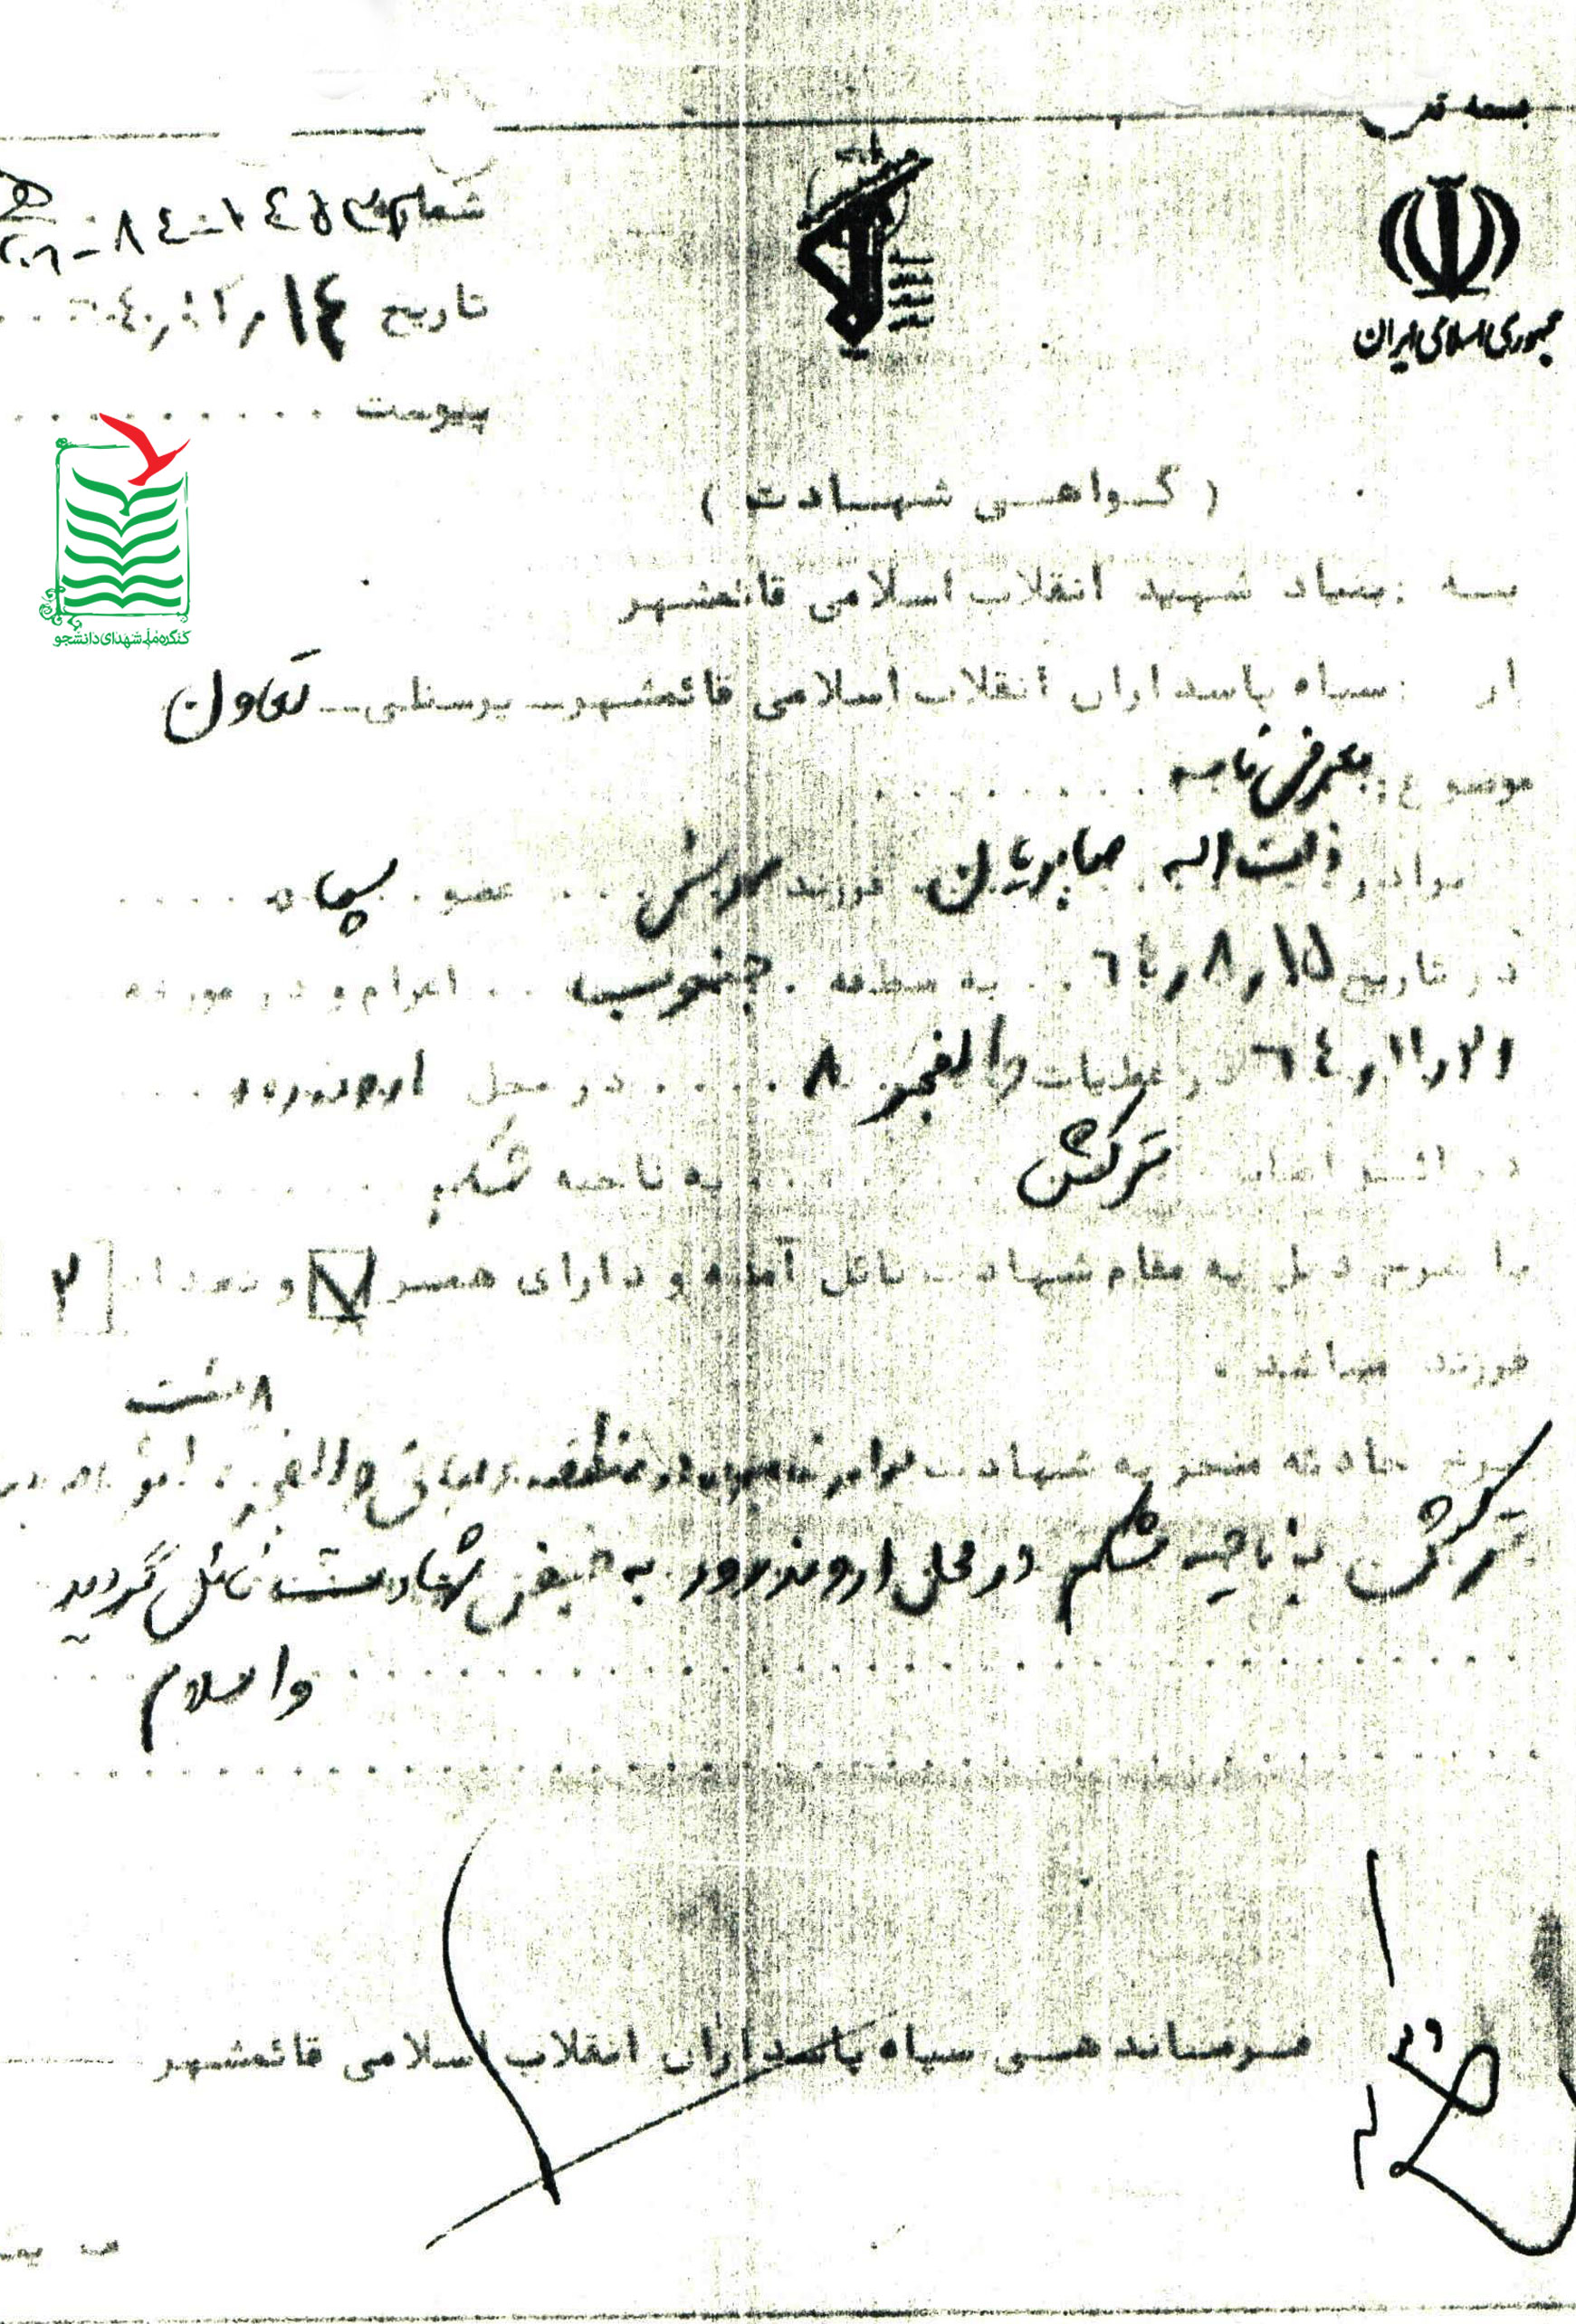 بسمه تعالی
جمهوری اسلامی ایران
شماره
تاریخ ۱۴
پیوست
کنگره ملی شهدای دانشجو
( گواهی شهادت )
به : بنیاد شهید انقلاب اسلامی قائمشهر
از : سپاه پاسداران انقلاب اسلامی قائمشهر - پرسنلی - تعاون
موضوع : معرفی نامه
برادر صابریان فرزند عضو سپاه
در تاریخ ۱۵ر۸ر به منطقه جنوب اعزام و در مورخه
۲۱ر۱۱ر۶۴ در عملیات والفجر ۸ در محل اروندرود
در اثر اصابت ترکش به ناحیه شکم
با شرح ذیل به مقام شهادت نائل آمده و دارای همسر و تعداد ۲
فرزند میباشد .
۸ هشت
شرح حادثه منجر به شهادت برادر نامبرده در منطقه عملیاتی والفجر
ترکش به ناحیه شکم در محل اروندرود به فیض شهادت نائل گردید
والسلام
فرماندهی سپاه پاسداران انقلاب اسلامی قائمشهر